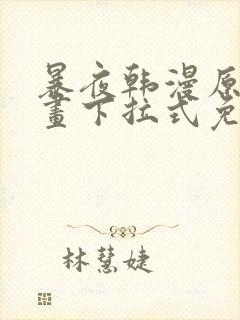 暴夜韩漫原
畫下拉式免
林慧婕